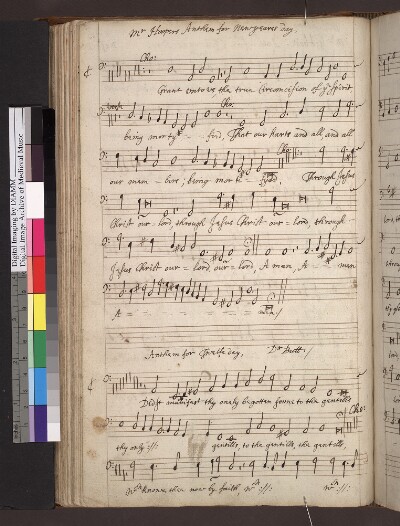 Mr Harpers Anthem for Newyeares day,
Cho:
Grant untous the true Circumcision of ye Spirit
Cho:
being morty- fied, That our harts and all, and all
Cho:
our mem- bers, being mort- fyed, Through Jesus
Christ our lord, through Jesus Christ our lord, through
Jesus Christ our lord, our lord, A men, A men
A men,/
Anthem for day, Dr Bull,/
Didst manifest thy onely begotten sonne to the gentills
Cho:
thy only :/: gentills, to the gentills, the gentills,
knowne thee now by faith, :/: :/:
Digital Imaging by DIAMM
Digital Image Archive of Medieval Music